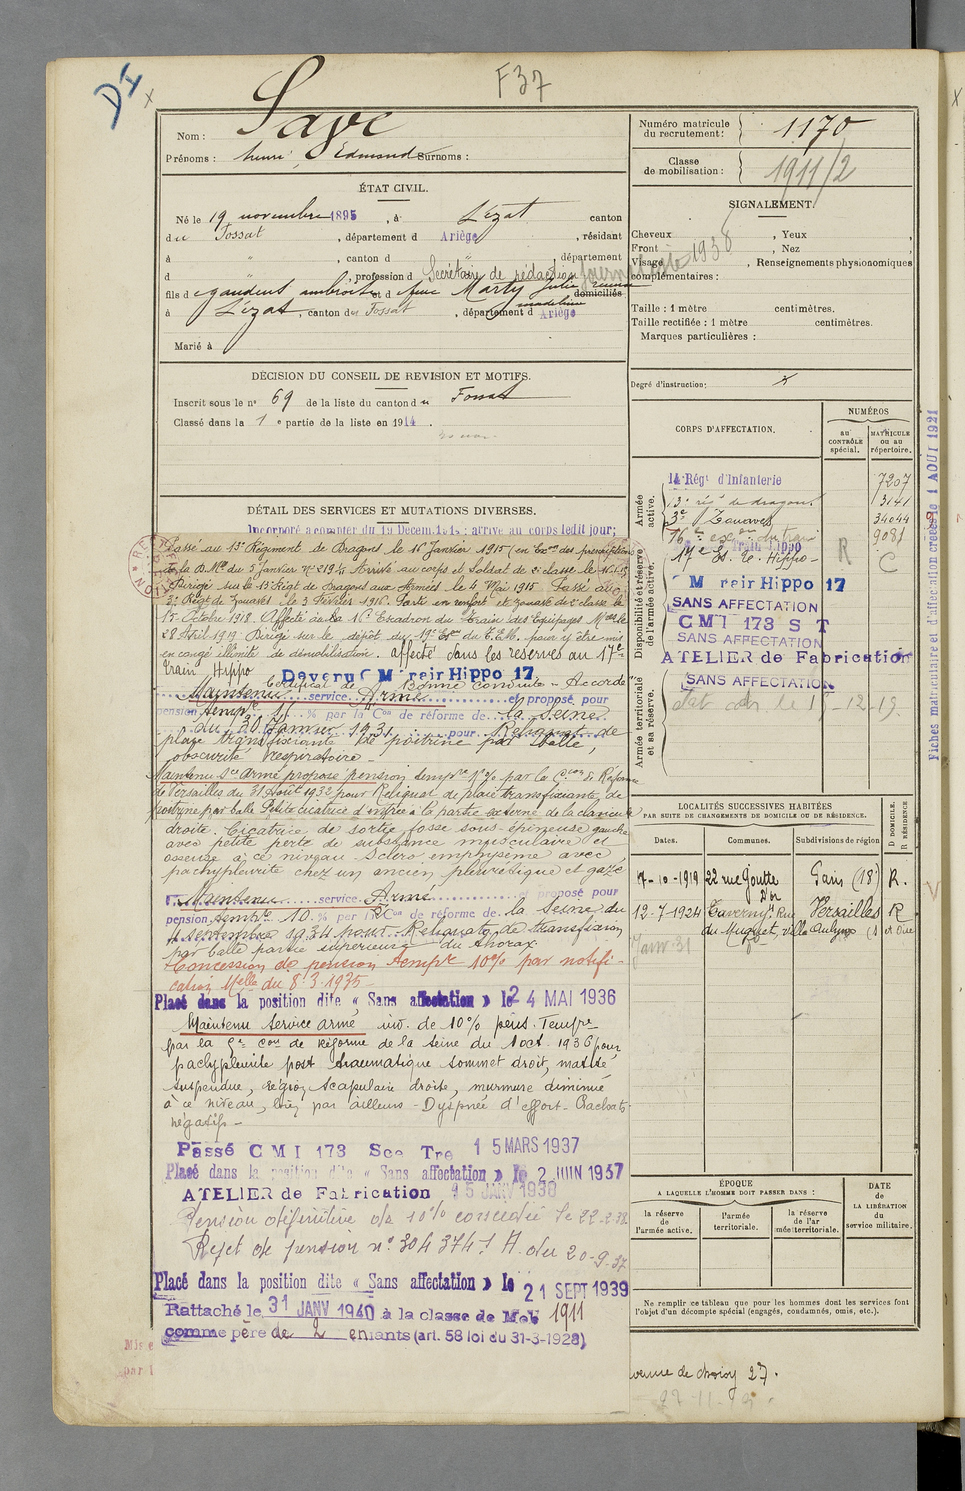 DI
F37
Nom : Save
Prénoms : henri, Edmond Surnoms :
Numéro matricule du recrutement : 1170
Classe de mobilisation : 1911/2
ÉTAT CIVIL.
Né le 19 novembre 1895, à Lézat canton
du Fossat, département d Ariège, résidant
à " , canton d " département
d " , profession d Secrétaire de rédaction Journaliste 1938
fils d e gaudens ambroise et d feue Marty Julie
madeleine domiciliés
à Lézat, canton du Fossat, département d Ariège
Marié à
SIGNALEMENT.
Cheveux , Yeux ,
Front , Nez
Visage , Renseignements physionomiques
complémentaires :
Taille : 1 mètre centimètres.
Taille rectifiée : 1 mètre centimètres.
Marques particulières :
Degré d'instruction :
DÉCISION DU CONSEIL DE REVISION ET MOTIFS.
Inscrit sous le n° 69 de la liste du canton du Fossat
Classé dans la 1 e partie de la liste en 1914.
DÉTAIL DES SERVICES ET MUTATIONS DIVERSES.
Incorporé a compter du 19 Décem.1914 : arrivé au corps ledit jour;
Passé au 13e Régiment de Dragons le 16 Janvier 1915 (en Exon des prescriptions
de la D.M. du 5 Janvier Arrivé au corps et Soldat de 2e classe le
Dirigé sur le 13e Régt de Dragons aux Armées le 4 Mai 1915. Passé au
3e Régt de Zouaves le 3 Février 1916. Parti en renfort et zouave de 2e classe le
15 Octobre 1918. Affecté au 16 Escadron du Train des Equipages Mres le
28 Avril 1919 Dirigé sur le dépôt du 19e Eson du T.E.M. pour y être mis
en congé illimité de démobilisation. affecté dans les réserves au 17e
train Hippo Devenu C M Train Hippo 17
Certificat de Bonne conduite - Accordé
Maintenu service Armé et proposé pour
pension tempre 10 % par la Con de réforme de la Seine
du 30 Janvier 1931 pour Reliquat de
plaie transfixiante de poitrine par balle,
obscurité respiratoire -
Maintenu Sce Armé proposé pension tempre 10% par la Con de Réforme
de Versailles du 31 Août 1932 pour Reliquat de plaie transfixiante de
poitrine par balle Petite cicatrice d'entrée à la partie externe de la clavicule
droite. Cicatrice de sortie fosse sous-épineuse gauche
avec petite perte de substance musculaire et
osseuse à ce niveau. Scléro emphysème avec
pachypleurite chez un ancien pleurétique et gazé
Maintenu service Armé et proposé pour
pension tempre 10 % par Con de réforme de la Seine du
4 septembre 1934 pour Reliquats de transfixion
par balle partie supérieure du thorax.
Concession de pension tempre 10% par notifi-
cation Mlle du 8.3.1935
Placé dans la position dite « Sans affectation » le 24 MAI 1936
Maintenu Service armé inv. de 10% pens. Tempre
par la Con de Réforme de la Seine du 1 oct. 1936 pour
pachypleurite post traumatique sommet droit, matité
suspendue, région scapulaire droite, murmure diminué
à ce niveau, bien par ailleurs - Dyspnée d'effort - Crachats
négatifs -
Passé C M I 173 See Tre 15 MARS 1937
Placé dans la position dite « Sans affectation » le 2 JUIN 1937
ATELIER de Fabrication 15 JANV 1938
Pension définitive de 10% concédée le 22-2-38
Rejet de pension n° 304374 du 20-9-37
Placé dans la position dite « Sans affectation » le 21 SEPT 1939
Rattaché le 31 JANV 1940 à la classe de Mob 1911
comme père de 2 enfants (art. 58 loi du 31-3-1928)
CORPS D'AFFECTATION.
NUMÉROS
au CONTRÔLE spécial.
MATRICULE ou au répertoire.
Armée active.
14 Régt d'Infanterie 7207
13e régt de dragons 3141
3e Zouaves 34044
16e esc. du train 9081
Disponibilité et réserve de l'armée active.
17e Es. Tr. Hippo - R C
C M Train Hippo 17
SANS AFFECTATION
CMI 173 S T
SANS AFFECTATION
ATELIER de Fabrication
SANS AFFECTATION
Armée territoriale et sa réserve.
Fiches matriculaire et d'affectation créées le 1 AOUT 1921
LOCALITÉS SUCCESSIVES HABITÉES
PAR SUITE DE CHANGEMENTS DE DOMICILE OU DE RÉSIDENCE.
Dates. Communes. Subdivisions de région D DOMICILE. R RÉSIDENCE
7-10-1919 22 rue Goutte d'or Paris (18e) R.
12-7-1924 Taverny, Rue Versailles R
du Muguet, S et Oise
Janv 31
ÉPOQUE
A LAQUELLE L'HOMME DOIT PASSER DANS :
la réserve de l'armée active.
l'armée territoriale.
la réserve de l'armée territoriale.
DATE de LA LIBÉRATION du service militaire.
Ne remplir ce tableau que pour les hommes dont les services font
l'objet d'un décompte spécial (engagés, condamnés, omis, etc.).
avenue de choisy 27.